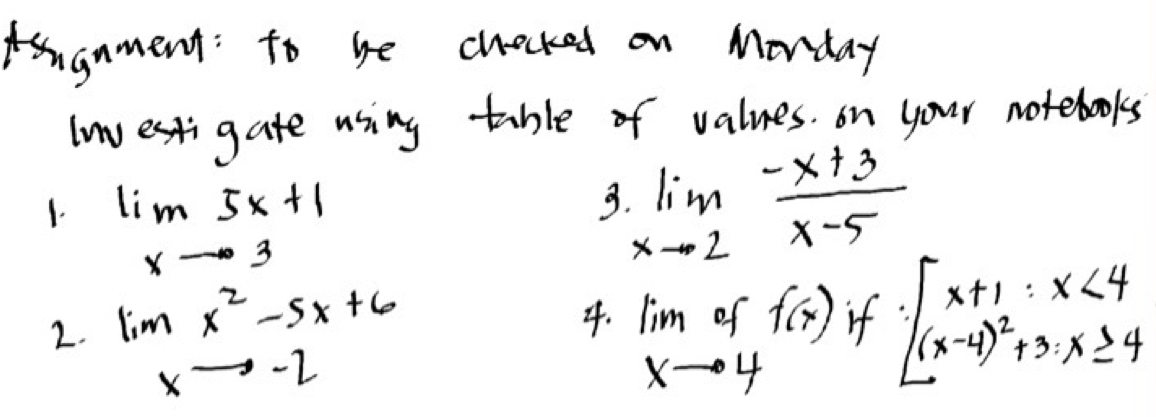 Assignment: to be checked on Monday
Investigate using table of values. on your notebooks
1. lim 5x+1
x → 3
2. lim x² -5x +6
x → -2
3. lim -x+3 / x-5
x → 2
4. lim of f(x) if : [ x+1 : x<4
(x-4)²+3: x ≥ 4
x → 4